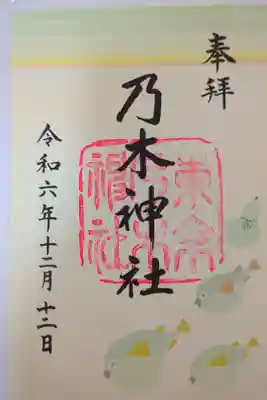 奉拝
乃木神社
令和六年十二月十二日
東京
神社